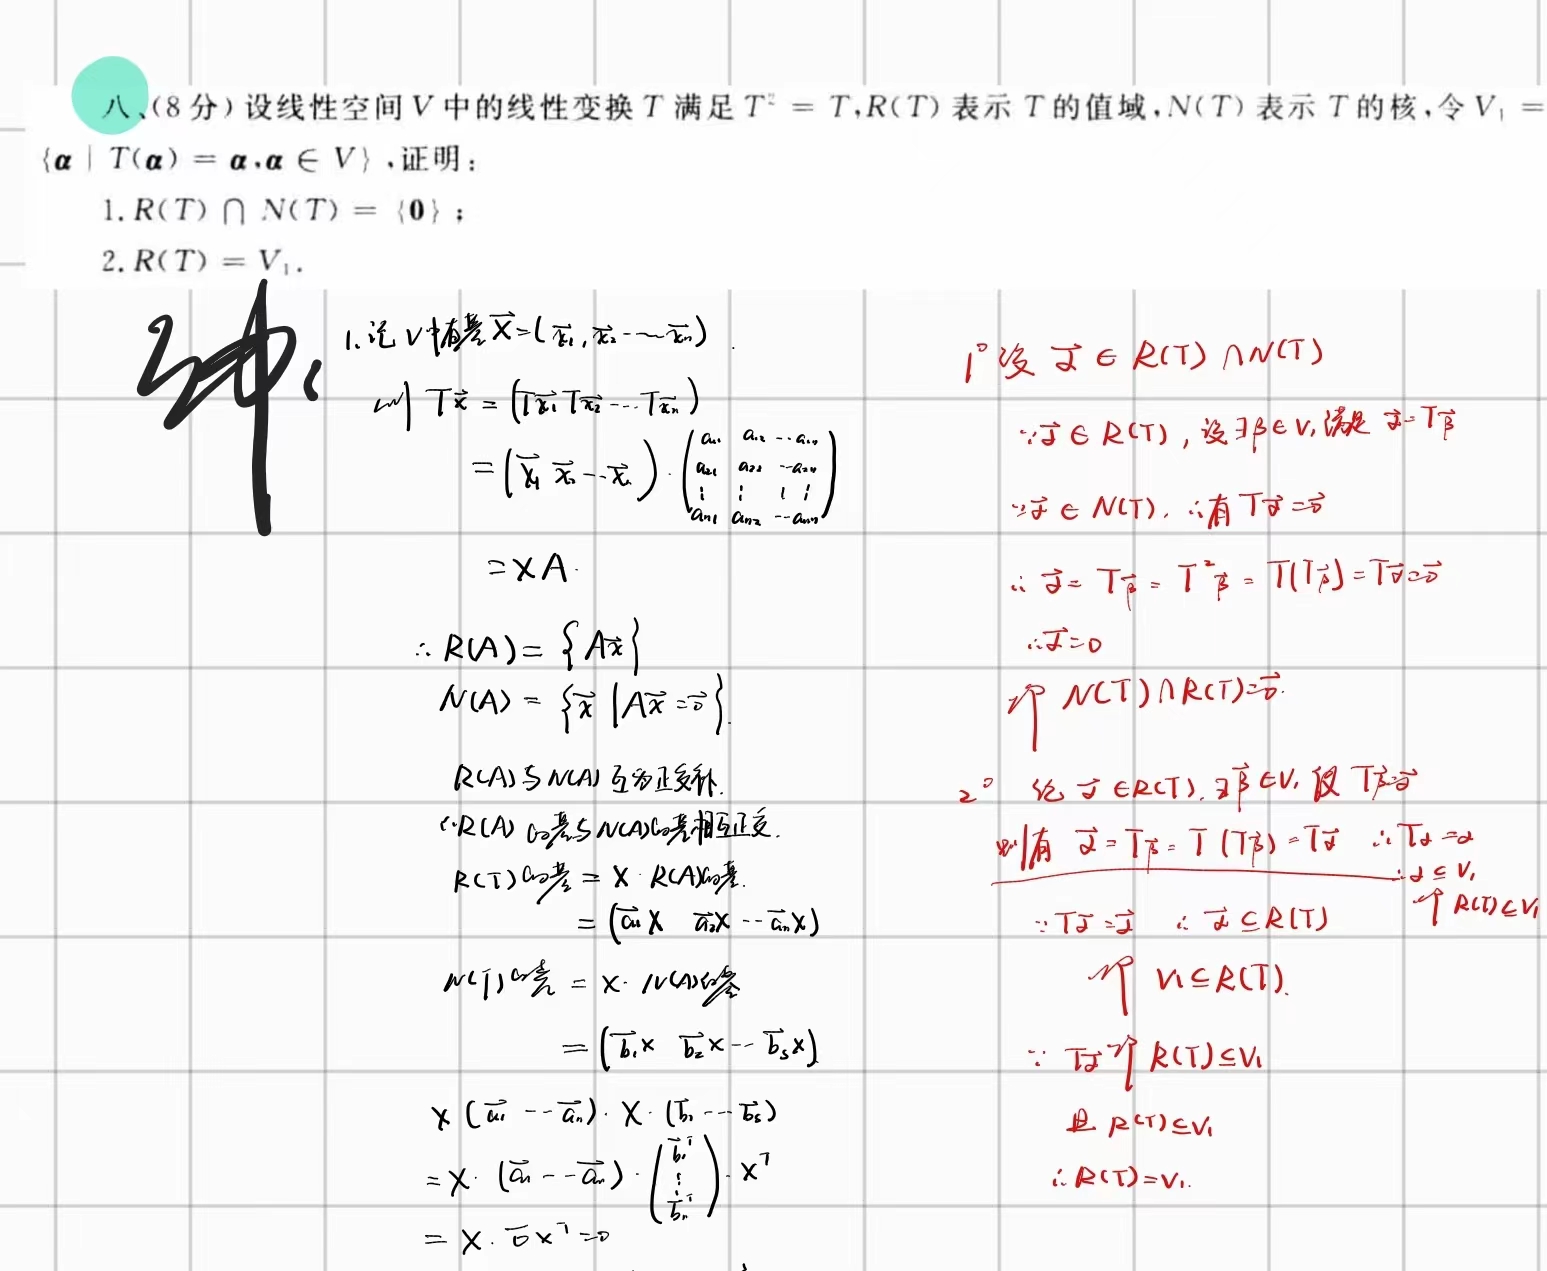 八、(8分)设线性空间V中的线性变换T满足T² = T,R(T)表示T的值域,N(T)表示T的核,令V₁ =
{α | T(α) = α,α ∈ V},证明:
1. R(T) ∩ N(T) = {0};
2. R(T) = V₁.
1. 记V中有基X⃗=(x⃗₁, x⃗₂ ---- x⃗ₙ).
则 Tx⃗ = (Tx⃗₁ Tx⃗₂ --- Tx⃗ₙ)
= (x⃗₁ x⃗₂ --- x⃗ₙ) · (a₁₁ a₁₂ --- a₁ₙ
a₂₁ a₂₂ --- a₂ₙ
⋮ ⋮ ⋮ ⋮
aₙ₁ aₙ₂ --- aₙₙ)
= XA.
∴ R(A) = {Ax⃗}
N(A) = {x⃗ | Ax⃗ = 0⃗}.
R(A)与N(A)互为正交补.
∴R(A)的基与N(A)的基相互正交.
R(T)的基 = X · R(A)的基.
= (a⃗₁X a⃗₂X --- a⃗ₙX)
N(T)的基 = X · N(A)的基
= (b⃗₁X b⃗₂X --- b⃗ₛX)
X (a⃗₁ --- a⃗ₙ) · X · (b⃗₁ --- b⃗ₛ)
= X · (a⃗₁ --- a⃗ₙ) · (b⃗₁ᵀ
⋮
b⃗ₙᵀ) · Xᵀ
= X · 0⃗ Xᵀ = 0
1° 设 α⃗ ∈ R(T) ∩ N(T)
∵ α⃗ ∈ R(T), 设∃β ∈ V, 满足 α⃗ = Tβ⃗
∵ α⃗ ∈ N(T), ∴有 Tα⃗ = 0⃗
∴ α⃗ = Tβ⃗ = T²β⃗ = T(Tβ⃗) = Tα⃗ = 0⃗
∴ α⃗ = 0
即 N(T) ∩ R(T) = 0⃗.
2° 给 α⃗ ∈ R(T), ∃β⃗ ∈ V, 使 Tβ⃗ = α⃗
则有 α⃗ = Tβ⃗ = T(Tβ⃗) = Tα⃗ ∴ Tα = α
∴ α ⊆ V₁
即 R(T) ⊆ V₁
∵ Tα⃗ = α⃗ ∴ α⃗ ⊆ R(T)
即 V₁ ⊆ R(T).
∵ Tα⃗ 即 R(T) ⊆ V₁
且 R(T) ⊆ V₁
∴ R(T) = V₁.